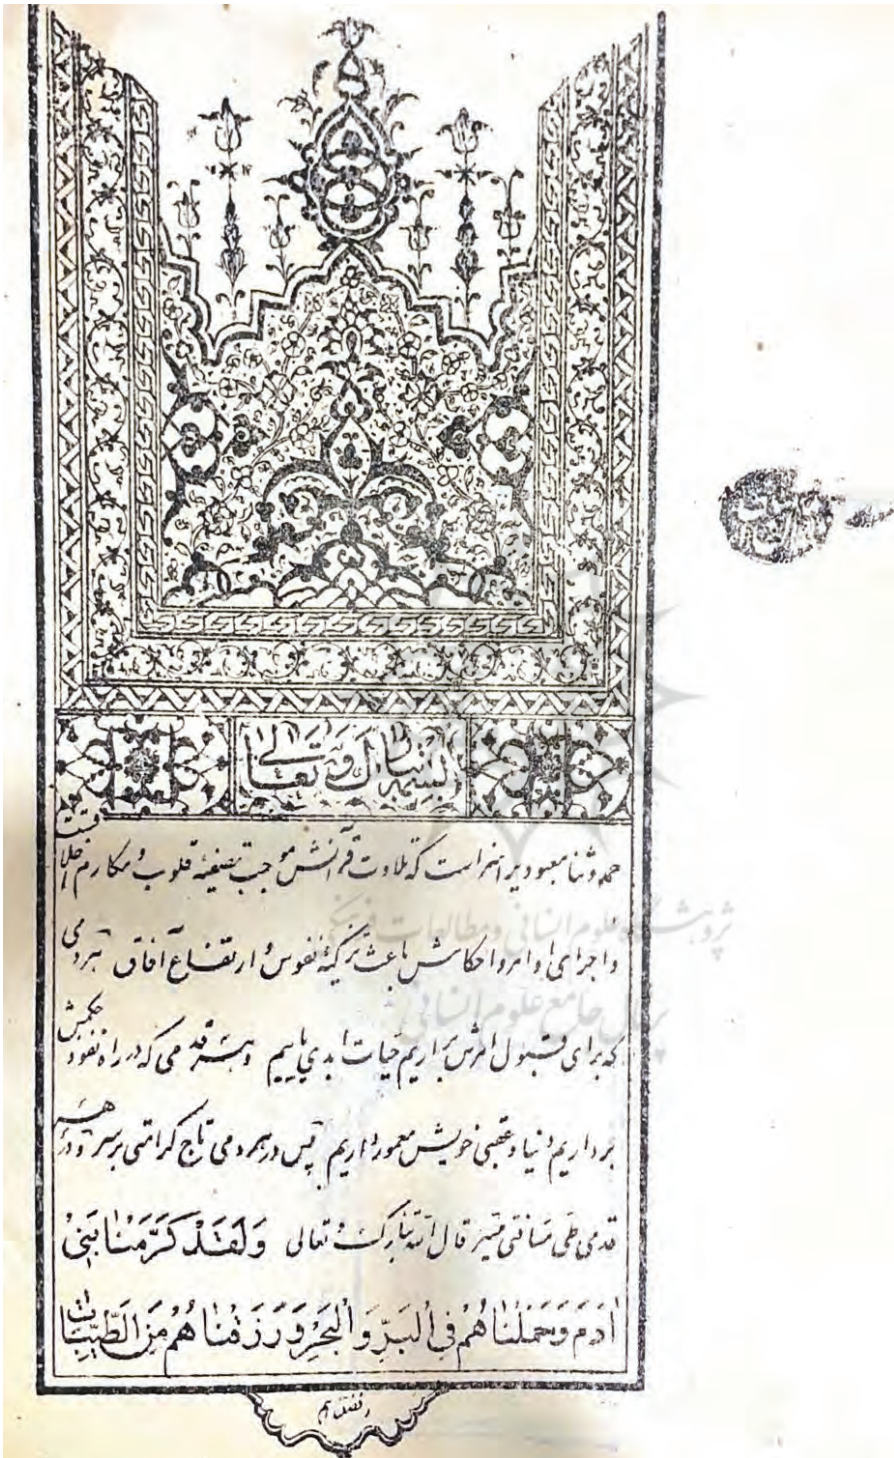 بسمه تبارک و تعالی
حمد و ثنا معبودیرا سزاست که تلاوت قرآنش موجب تصفیهٔ قلوب و مکارم اخلاقست
و اجرای اوامر و احکامش باعث تزکیهٔ نفوس و ارتفاع آفاق بهر دمی
که برای قبول امرش براریم حیات ابدی یابیم و بهر قدمی که در راه نفوذ حکمش
برداریم دنیا و عقبی خویش معمور داریم پس در هر دمی تاج کرامتی بر سر و در هر
قدمی طی مسافتی میسر قال الله تبارک و تعالی وَلَقَدْ كَرَّمْنَا بَنِي
اٰدَمَ وَحَمَلْنَاهُمْ فِي الْبَرِّ وَالْبَحْرِ وَرَزَقْنَاهُمْ مِنَ الطَّيِّبَاتِ
و فضلناهم
پژوهشگاه علوم انسانی و مطالعات فرهنگی
پرتال جامع علوم انسانی